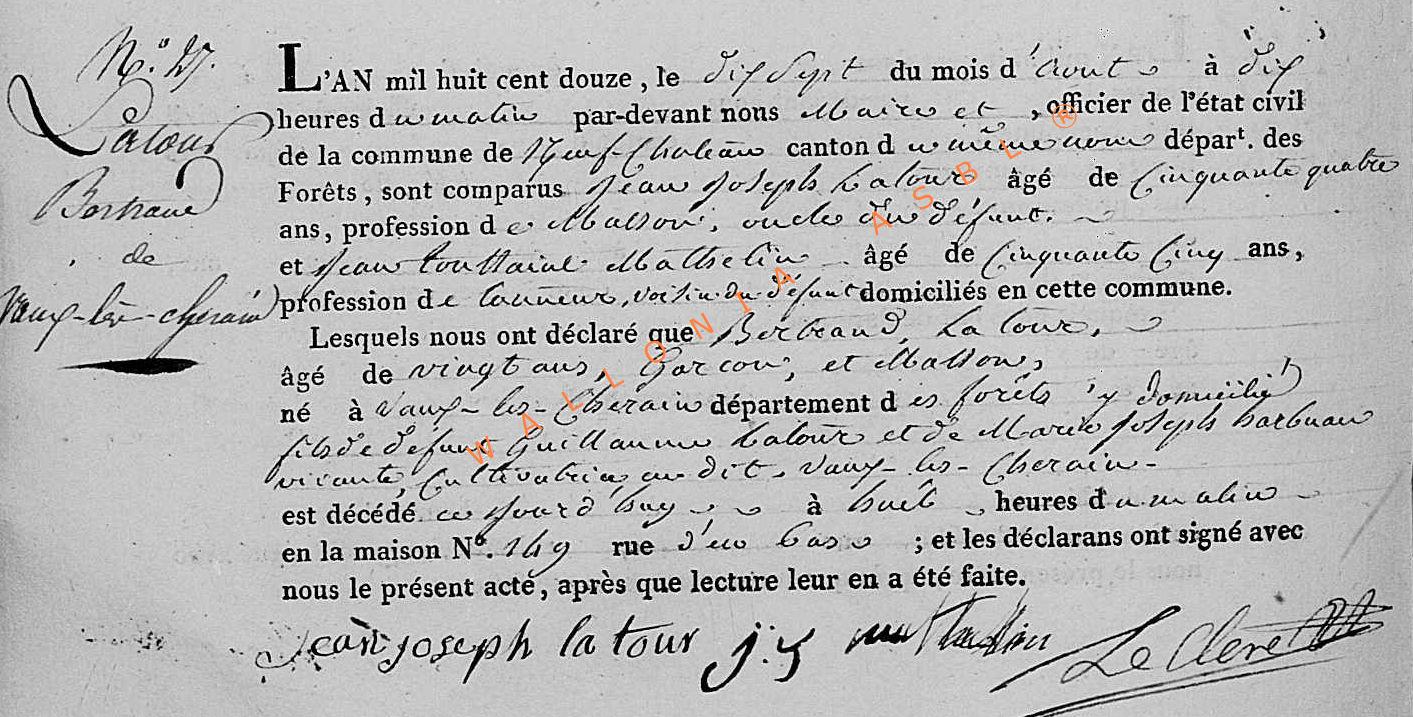 N.° 27.
Latour
Bertrand
de
Vaux-les-cherain
L'AN mil huit cent douze, le dix Sept du mois d'Aout à dix
heures du matin par-devant nous Maire et, officier de l'état civil
de la commune de Neuf-Château canton du même nom départ. des
Forêts, sont comparus Jean Joseph Latour âgé de Cinquante quatre
ans, profession de Masson, oncle du défunt.
et Jean toussaint Mathelin âgé de Cinquante Cinq ans,
profession de tanneur, voisin du défunt domiciliés en cette commune.
Lesquels nous ont déclaré que Bertrand Latour,
âgé de vingt ans, Garcon, et Masson,
né à Vaux-les-Cherain département des forêts y domicilié
fils de defunt Guillaume Latour et de Marie Joseph
vivante, Cultivatrice au dit Vaux-les-Cherain-
est décédé ce jourd'huy à huit heures du matin
en la maison N°. 149 rue d'en bas ; et les déclarans ont signé avec
nous le présent acte, après que lecture leur en a été faite.
jean joseph latour j. t mathelin Le Clerc
WALLONIA ASBL ®